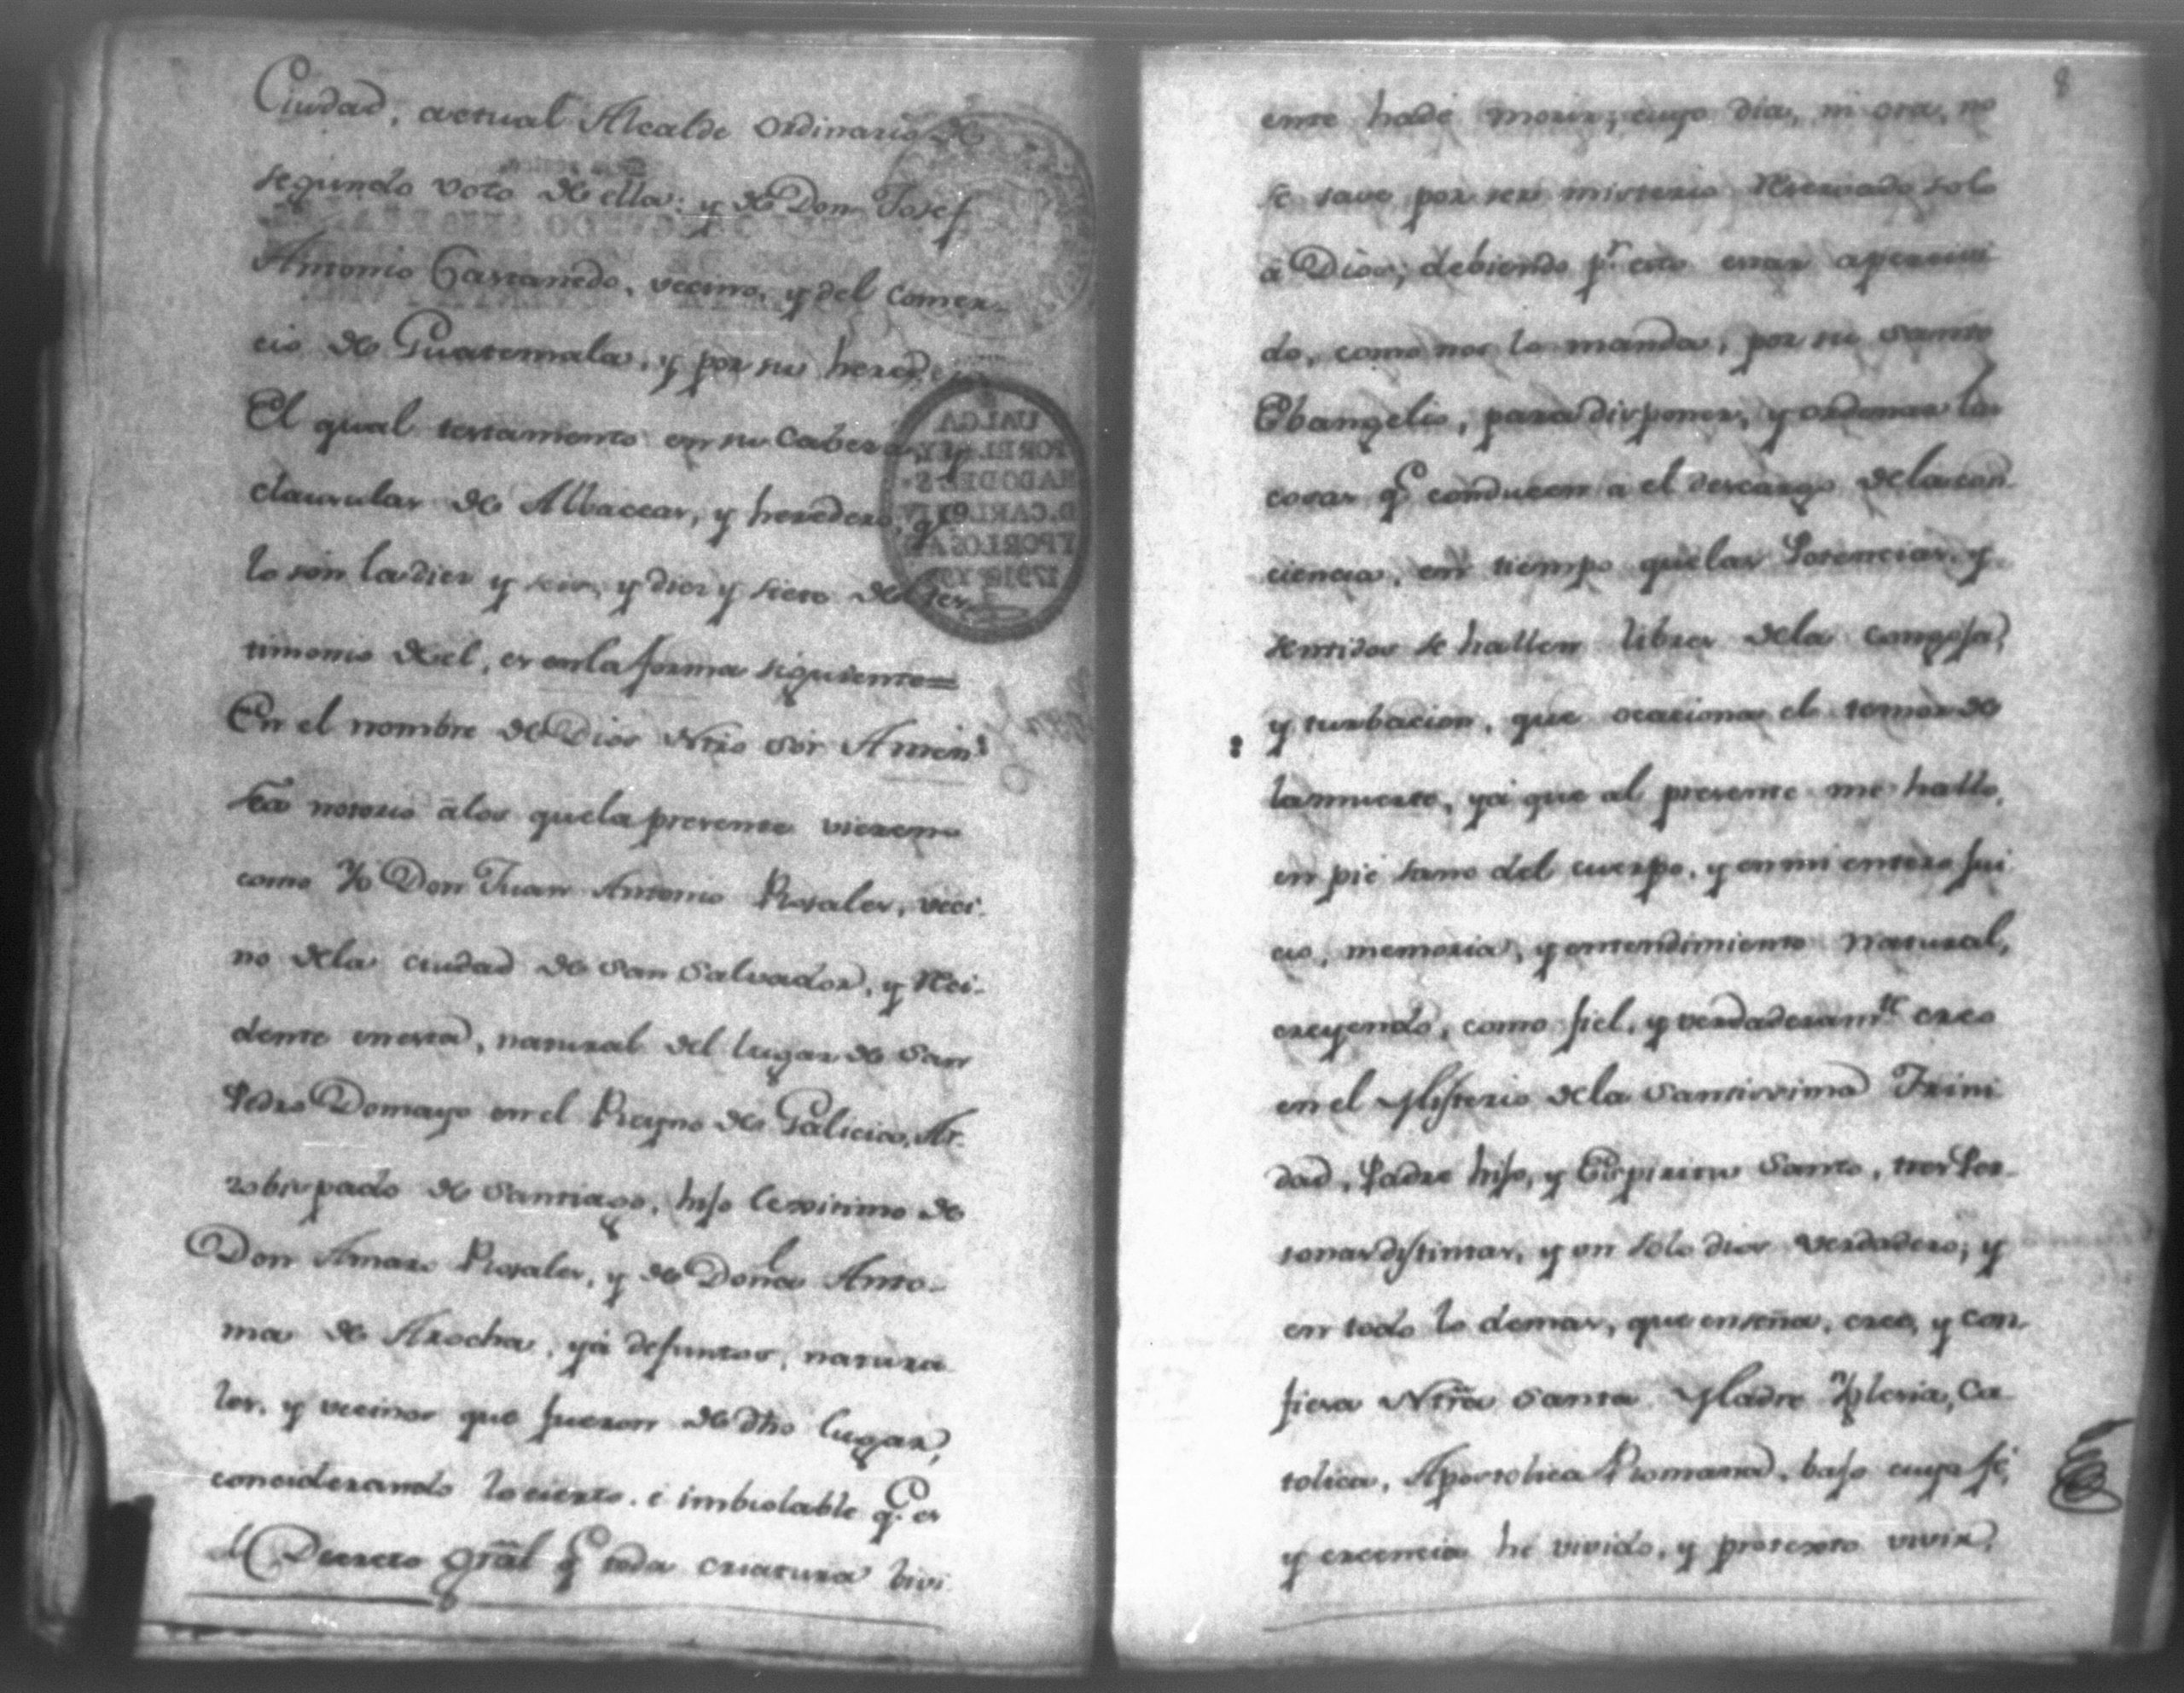 Ciudad, actual Alcalde Ordinario de
segundo voto de ella: y de Don Josef
Antonio Castanedo, vecino, y del Comer-
cio de Guatemala, y por su heredero
El qual testamento en su Cabeza, y
clausulas de Albaceas, y heredero, qe
lo son la diez y seis, y diez y siete del tes-
timonio de el, es en la forma siguiente=
En el nombre de Dios Ntro Sor Amen:
sea notorio á los que la presente vieren
como Yo Don Juan Antonio Rosales, veci-
no de la ciudad de San Salvador, y Reci-
dente en esta, natural del lugar de San
Pedro Domayo en el Reyno de Galicia, Ar-
zobispado de Santiago, hijo lexitimo de
Don Amaro Rosales, y de Doña Anto-
nia de Arocha, yá defuntos, natura
les, y vecinos que fueron de dho lugar,
conciderando lo cierto, é imbiolable qe es
el Decreto gral qe toda criatura vivi
8
ente hade morir, cuyo dia, ni ora, no
se save por ser misterio Reservado solo
á Dios; debiendo pr esto estar apercivi
do, como nos lo manda, por su Santo
Ebangelio, para disponer, y ordenar las
cosas qe conducen a el descargo de la con
ciencia, en tiempo que las Potencias, y
sentidos se hallen libres de la congoja,
y turbacion, que ocaciona el temor de
la muerte, yá que al presente me hallo,
en pie sano del cuerpo, y en mi entero jui
cio, memoria, y entendimiento natural,
creyendo, como fiel, y verdaderamte creo
en el Misterio de la Santissima Trini
dad, Padre hijo, y Espiritu Santo, tres Per-
sonas distintas, y un solo dios verdadero; y
en todo lo demas, que enseña, cree, y con-
fiesa Ntra Santa Madre Yglesia, Ca-
tolica, Apostolica Romana, bajo cuya fé,
y creencia he vivido, y protexto vivir,